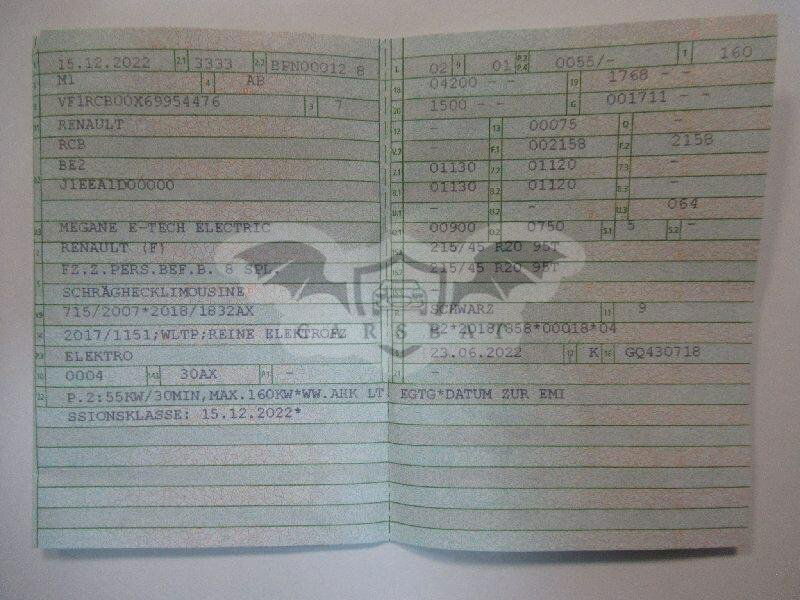 15.12.2022 2.1 3333 2.2 BFN00012 8
M1 4 AB
VF1RCB00X69954476 3 7
RENAULT
RCB
BE2
J1EEA1D00000
MEGANE E-TECH ELECTRIC
RENAULT (F)
FZ.Z.PERS.BEF.B. 8 SPL.
SCHRÄGHECKLIMOUSINE
715/2007*2018/1832AX
2017/1151;WLTP;REINE ELEKTROFZ
ELEKTRO
0004 30AX -
P.2:55KW/30MIN,MAX.160KW*WW.AHK LT. EGTG*DATUM ZUR EMI
SSIONSKLASSE: 15.12.2022*
02 9 01 P.2 P.4 0055/- T 160
04200 - - 19 1768 - -
1500 - - G 001711 - -
- 13 00075 Q -
- F.1 002158 F.2 2158
01130 7.2 01120 7.3 -
01130 8.2 01120 8.3 -
- - U.3 064
00900 O.2 0750 S.1 5 S.2 -
215/45 R20 95T
215/45 R20 95T
SCHWARZ 11 9
E2*2018/858*00018*04
23.06.2022 17 K 16 GQ430718
-
CARSBAT